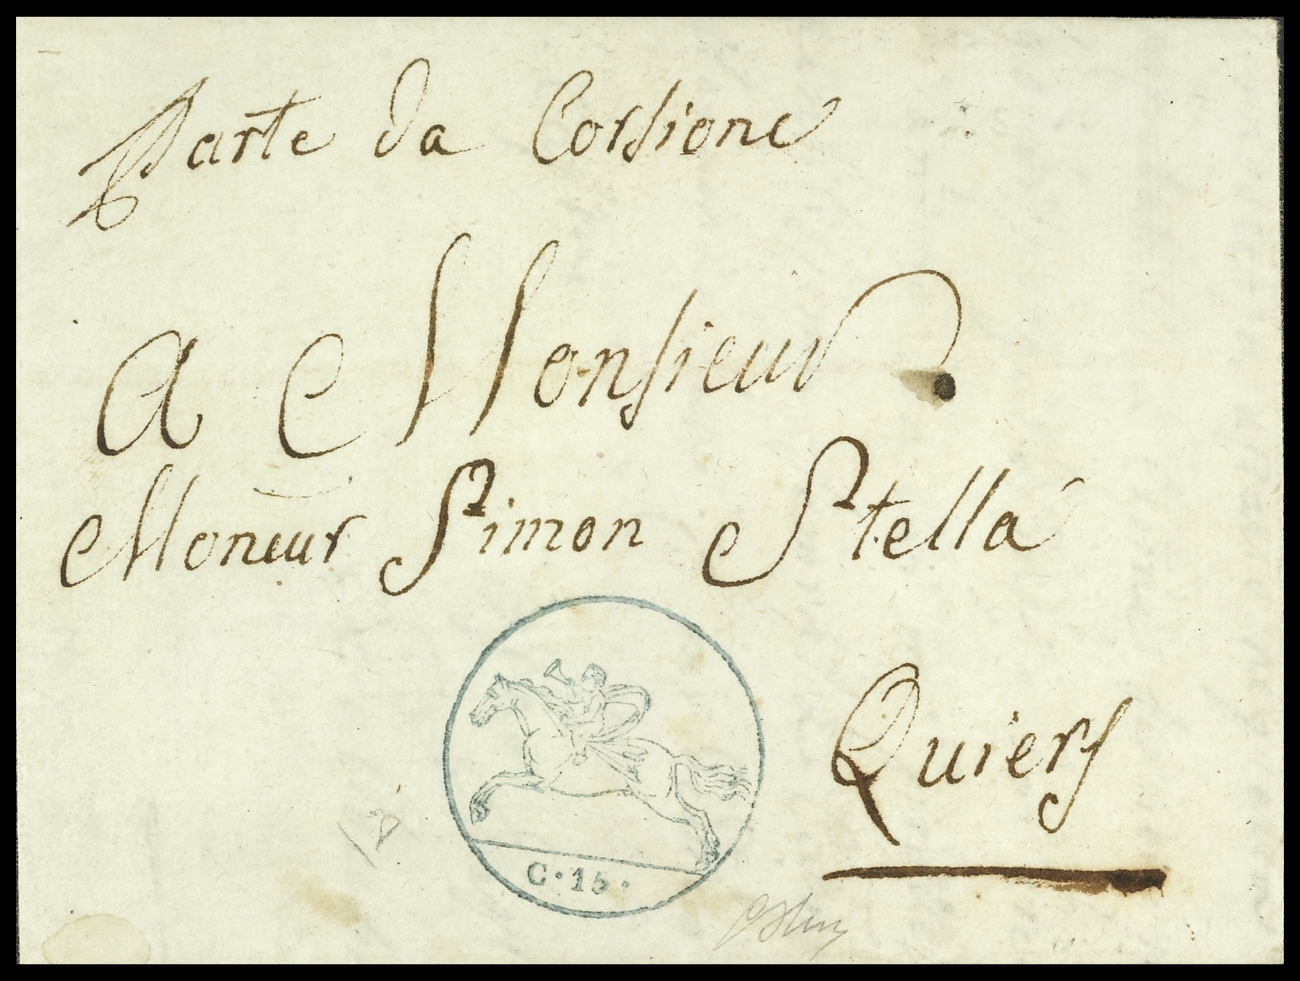 Parte da Corsione
A Monsieur
Monsieur Simon Stella
Quiers
C · 15 ·